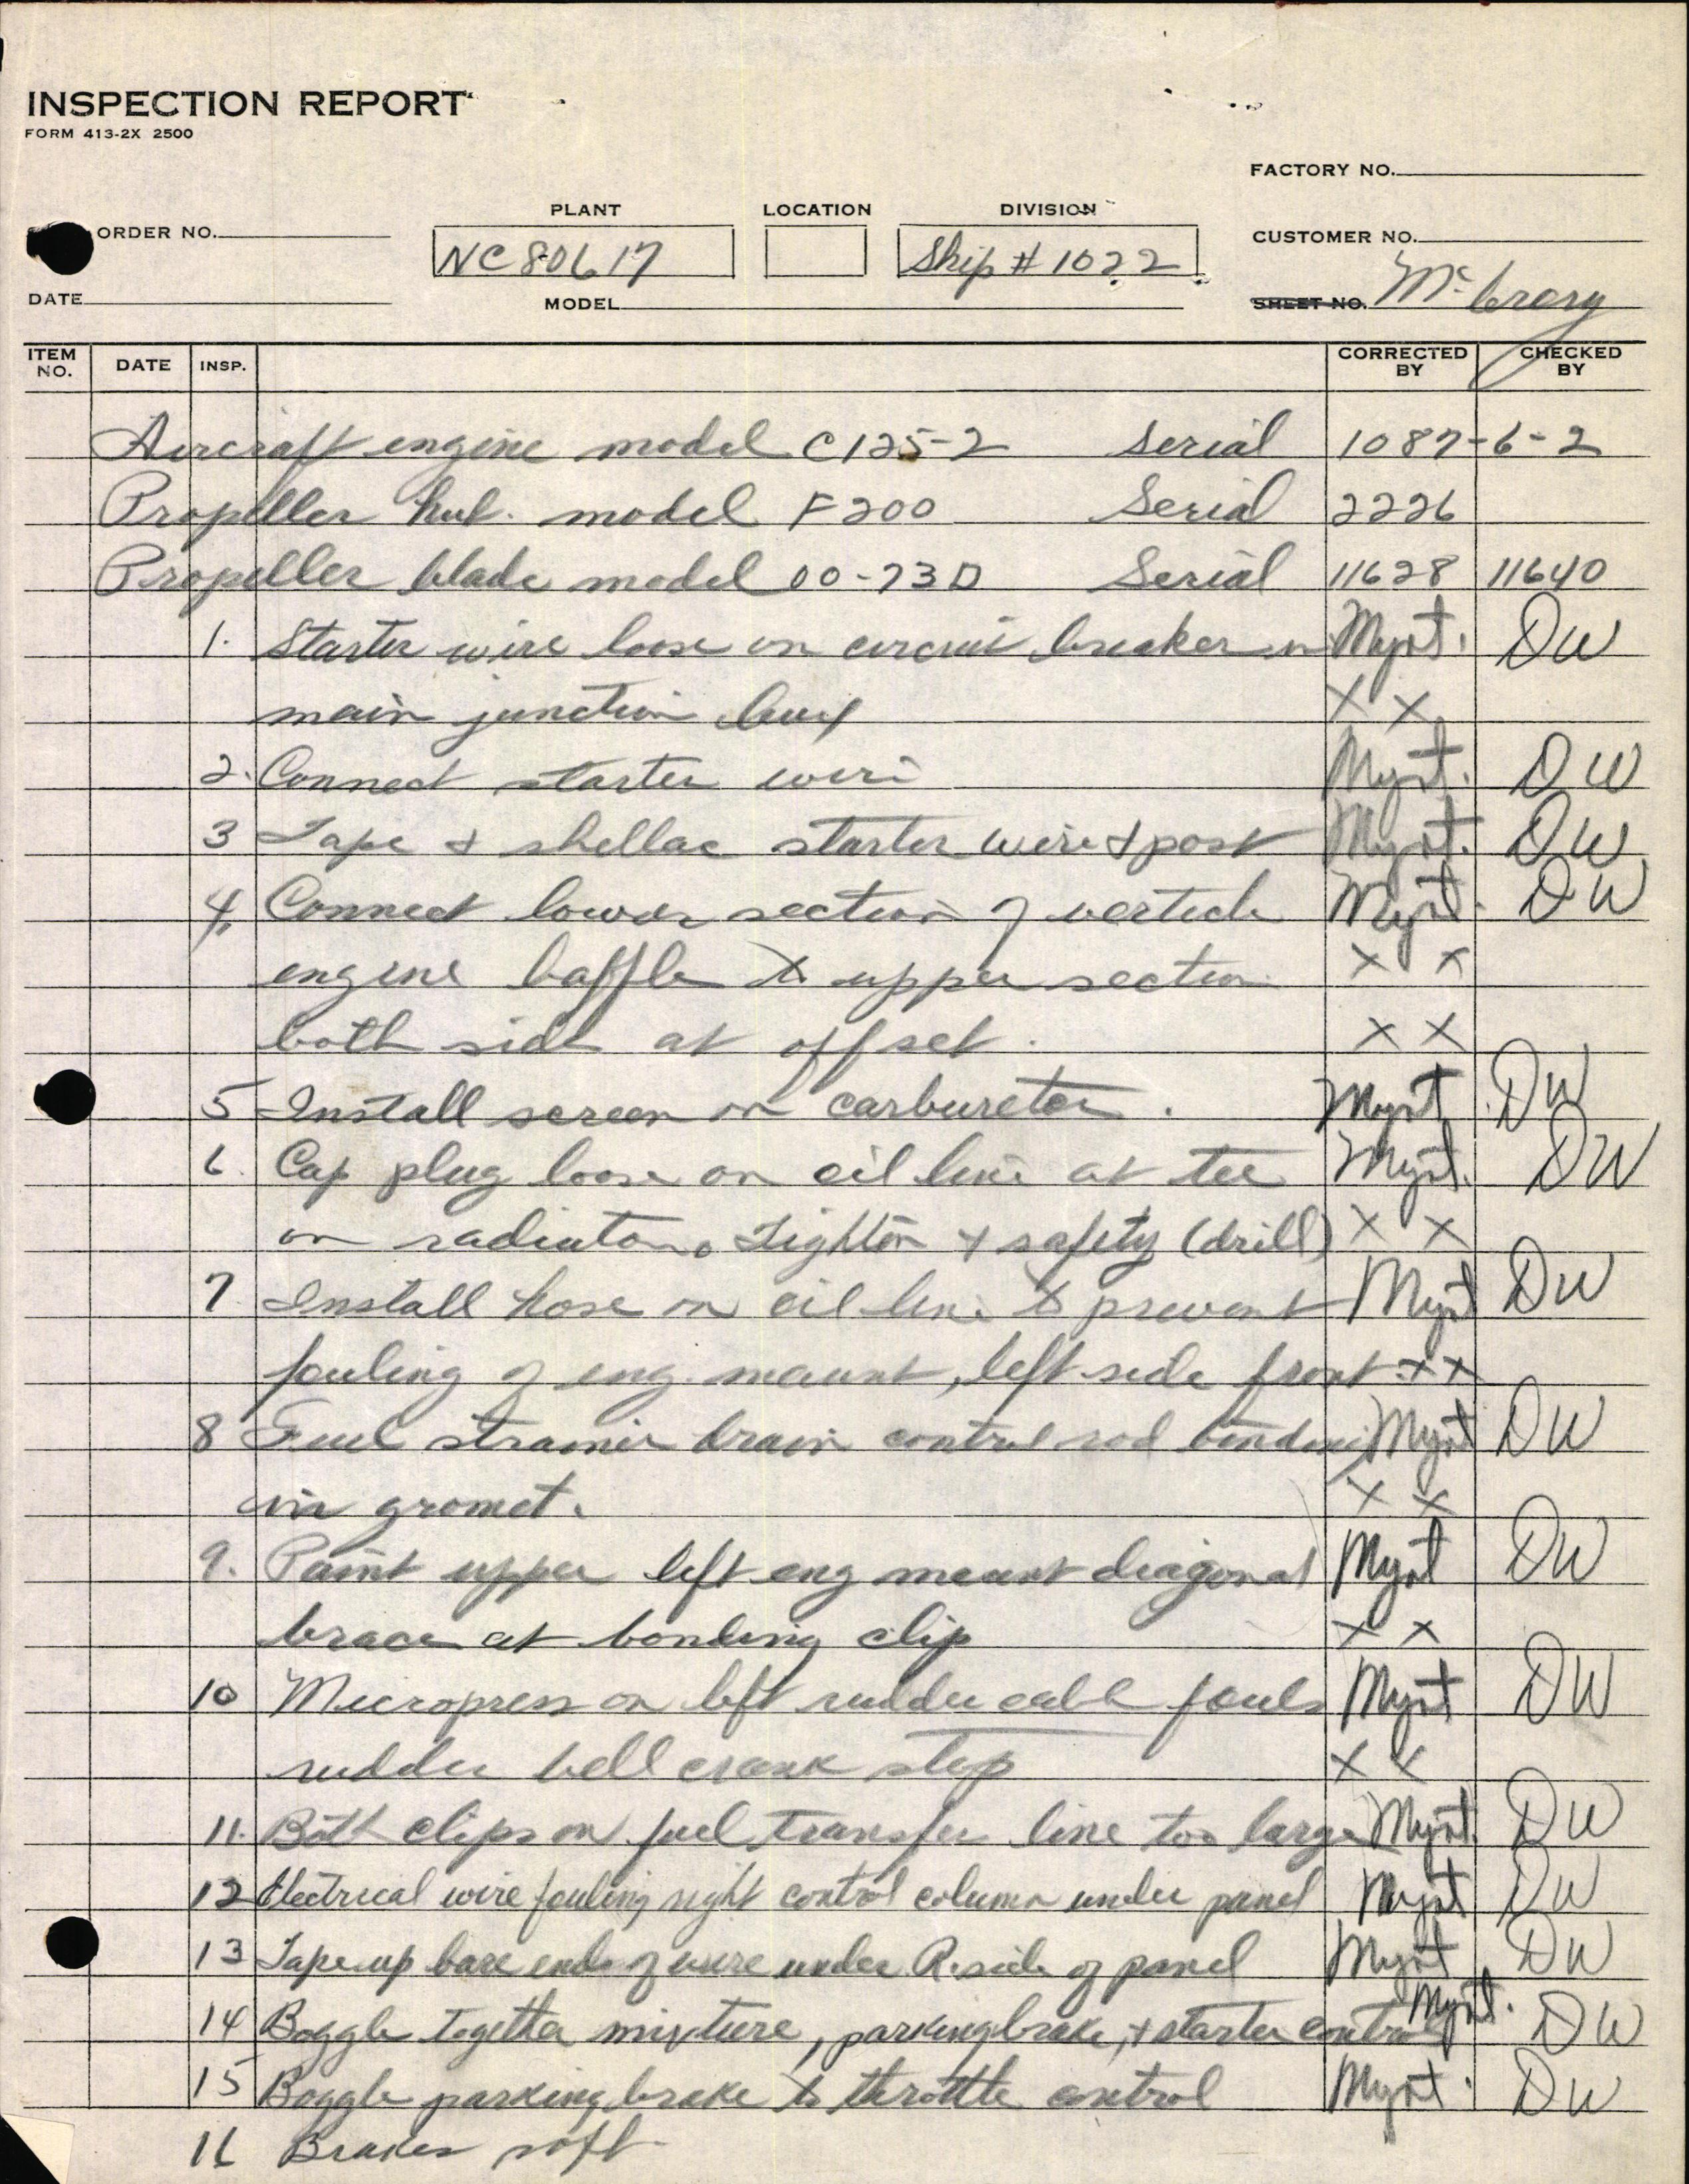 INSPECTION REPORT
FORM 413-2X 2500
FACTORY NO.
PLANT LOCATION DIVISION
ORDER NO. NC80617 Ship # 1022 CUSTOMER NO.
DATE MODEL SHEET NO. McCrary
ITEM NO. DATE INSP. CORRECTED BY CHECKED BY
Aircraft engine model C125-2 Serial 1087-6-2
Propeller hub. model F200 Serial 2226
Propeller blade model 00-73D Serial 11628 11640
1. Starter wire loose on circuit breaker in DW
main junction box X X
2. Connect starter wire DW
3 Tape & shellac starter wire & post DW
4. Connect lower section of verticle DW
engine baffle to upper section X X
both side at offset. X X
5 Install screen on carburetor. DW
6. Cap plug loose on oil line at tee DW
on radiator. Tighten & safety (drill) X X
7. Install hose on oil line to prevent DW
fouling of eng. mount, left side front X X
8 Fuel strainer drain control rod binding DW
in gromet. X X
9. Paint upper left eng mount diagonal DW
brace at bonding clip X X
10 Micropress on left rudder cable fouls DW
rudder bell crank stop X X
11. Both clips on fuel transfer line too large DW
12 Electrical wire fouling right control column under panel DW
13 Tape up bare ends of wire under R. side of panel DW
14 Boggle togetha mixture, parking brake, & starter control DW
15 Boggle parking brake to throttle control DW
16 Brakes soft